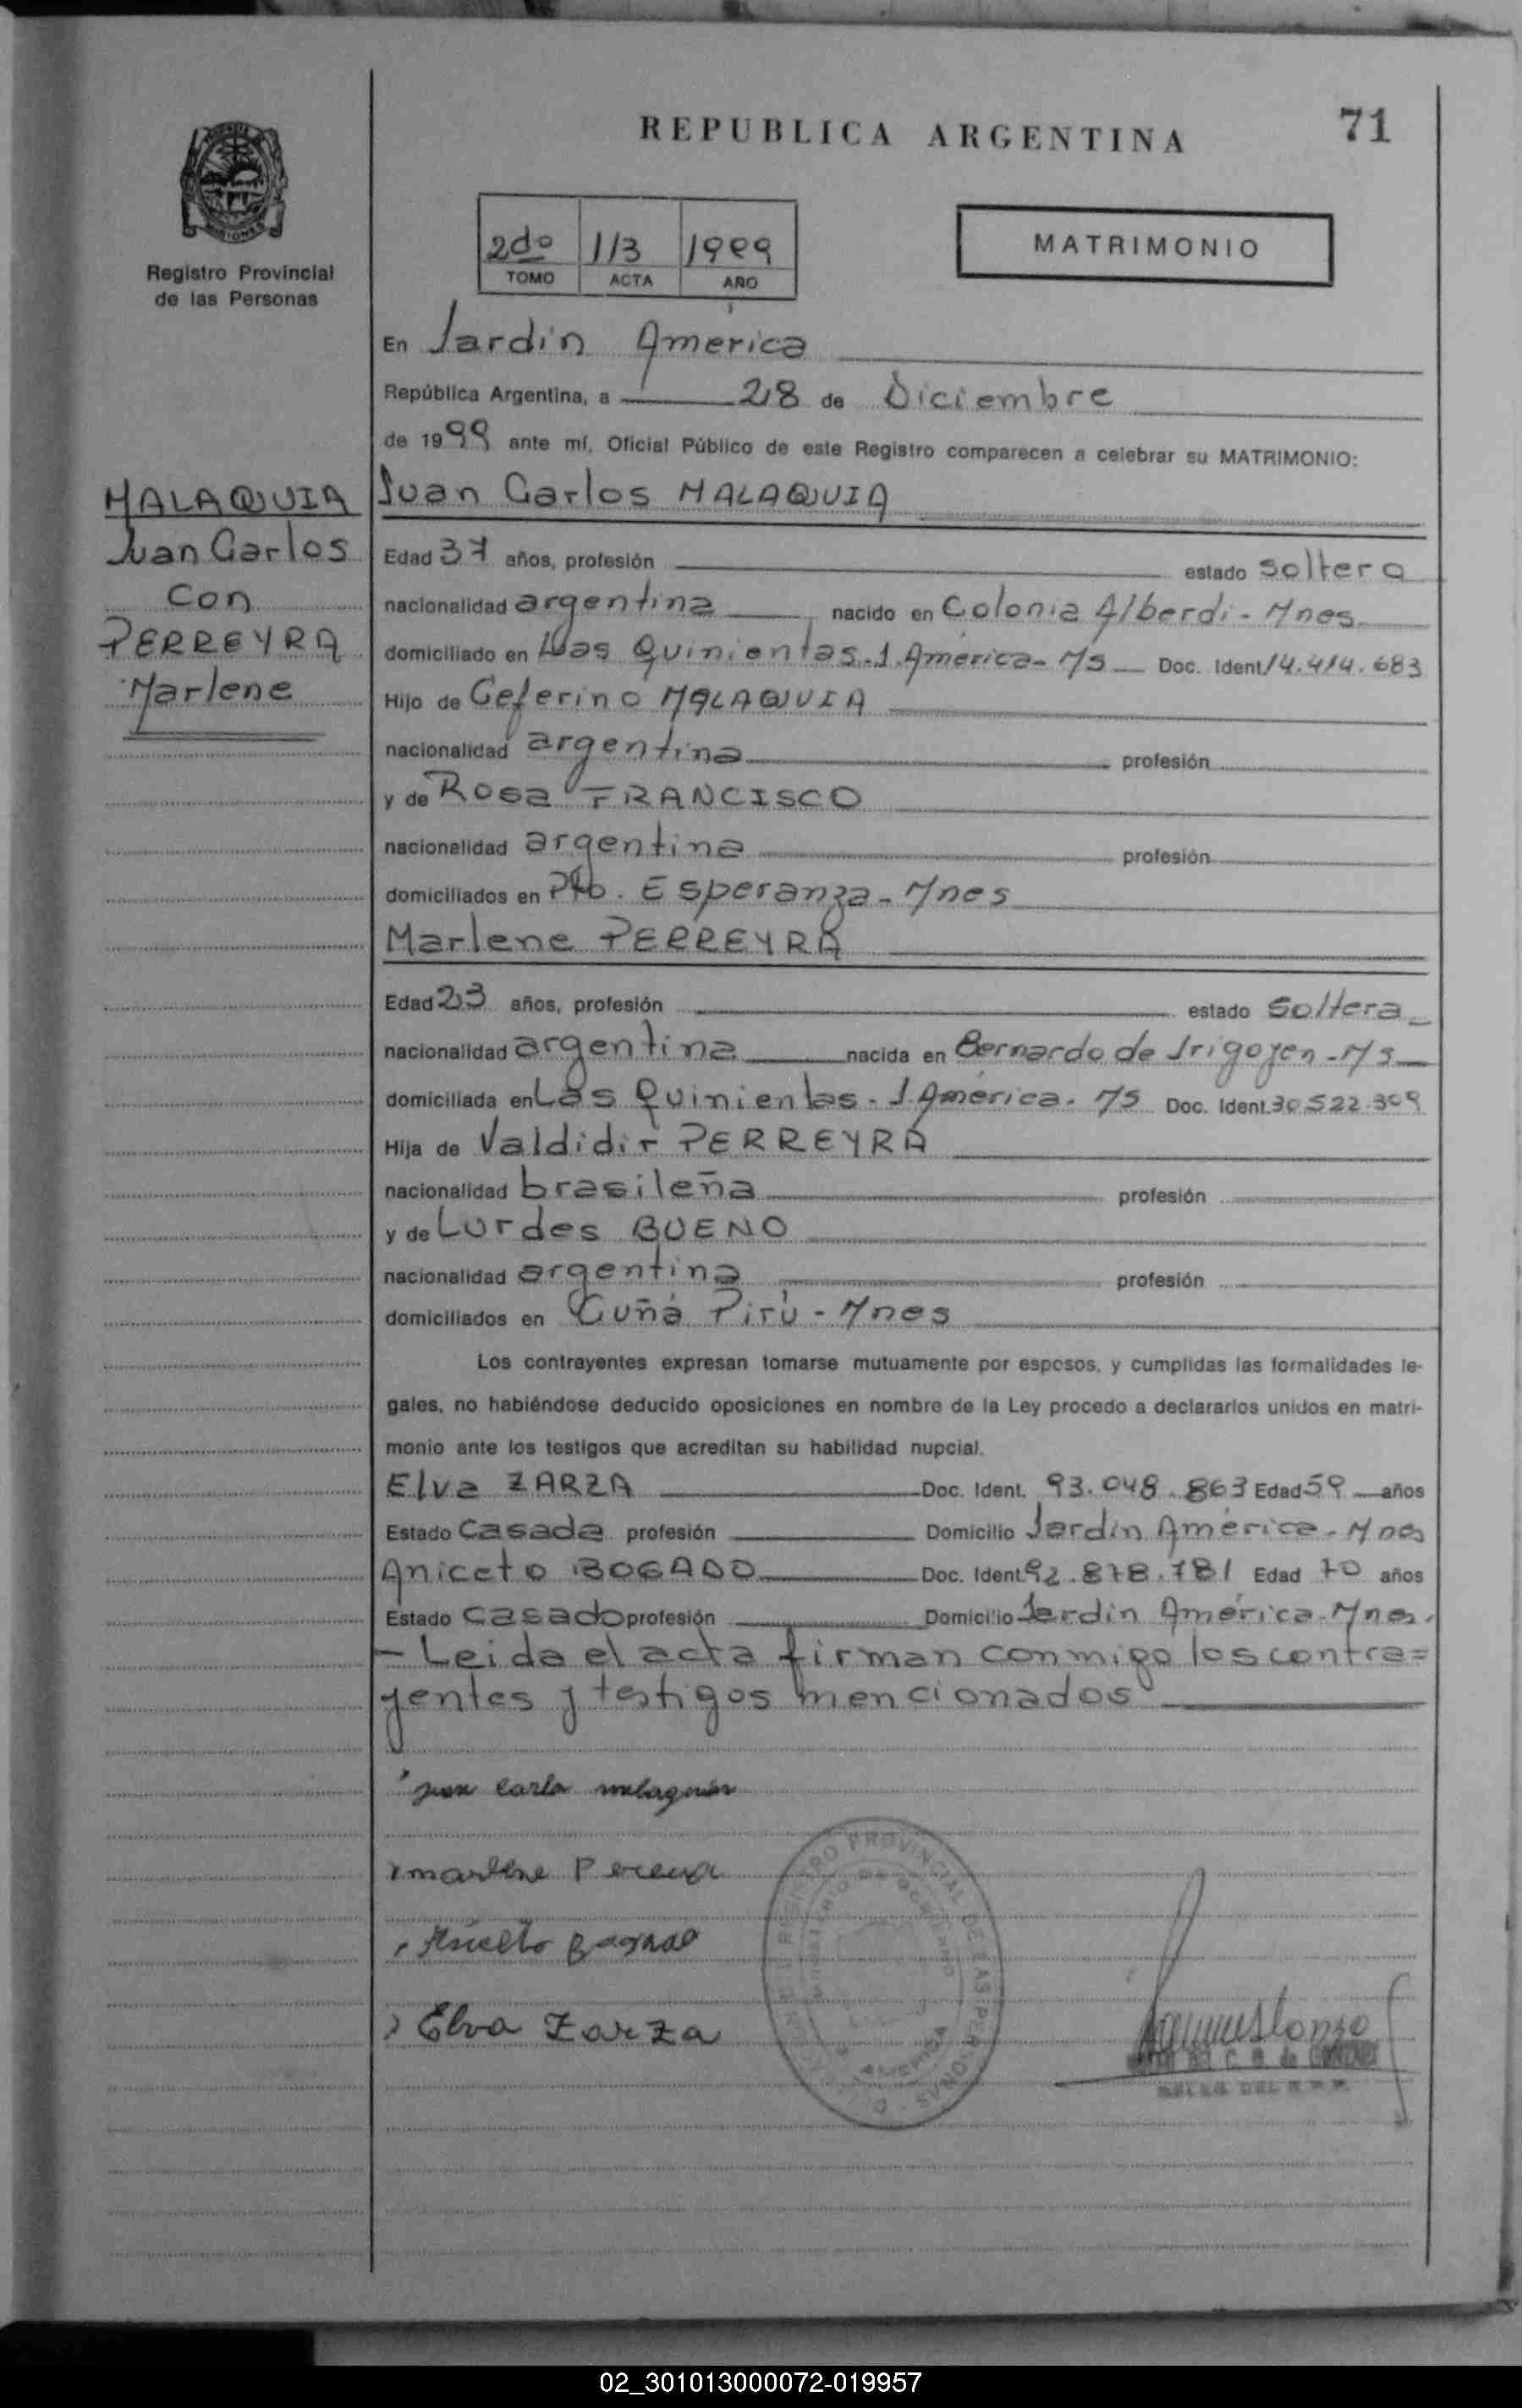 REPUBLICA ARGENTINA
71
MISIONES
Registro Provincial
de las Personas
2do 113 1999
TOMO ACTA AÑO
MATRIMONIO
En Jardin America
República Argentina, a 28 de Diciembre
de 1999 ante mí, Oficial Público de este Registro comparecen a celebrar su MATRIMONIO:
MALAQUIA
Juan Carlos
con
PERREYRA
Marlene
Juan Carlos MALAQUIA
Edad 37 años, profesión estado soltero
nacionalidad argentina nacido en Colonia Alberdi - Mnes.
domiciliado en Las Quinientas - J. América - Ms Doc. Ident 14.414.683
Hijo de Ceferino MALAQUIA
nacionalidad argentina profesión
y de Rosa FRANCISCO
nacionalidad argentina profesión
domiciliados en Pto. Esperanza - Mnes
Marlene PERREYRA
Edad 23 años, profesión estado soltera
nacionalidad argentina nacida en Bernardo de Irigoyen - Ms
domiciliada en Las Quinientas - J. América - Ms Doc. Ident. 30.522.309
Hija de Valdidir PERREYRA
nacionalidad brasileña profesión
y de Lurdes BUENO
nacionalidad argentina profesión
domiciliados en Cuñá Pirú - Mnes
Los contrayentes expresan tomarse mutuamente por esposos, y cumplidas las formalidades le-
gales, no habiéndose deducido oposiciones en nombre de la Ley procedo a declararlos unidos en matri-
monio ante los testigos que acreditan su habilidad nupcial.
Elva ZARZA Doc. Ident. 93.048.863 Edad 59 años
Estado Casada profesión Domicilio Jardín América - Mnes
Aniceto BOGADO Doc. Ident. 92.878.781 Edad 70 años
Estado Casado profesión Domicilio Jardin América - Mnes.
- Leida el acta firman conmigo los contra=
yentes y testigos mencionados
juan carlo malaquia
marlene Pereura
Aniceto Bogado
Elva Zarza
REGISTRO PROVINCIAL DE LAS PERSONAS
02_301013000072-019957